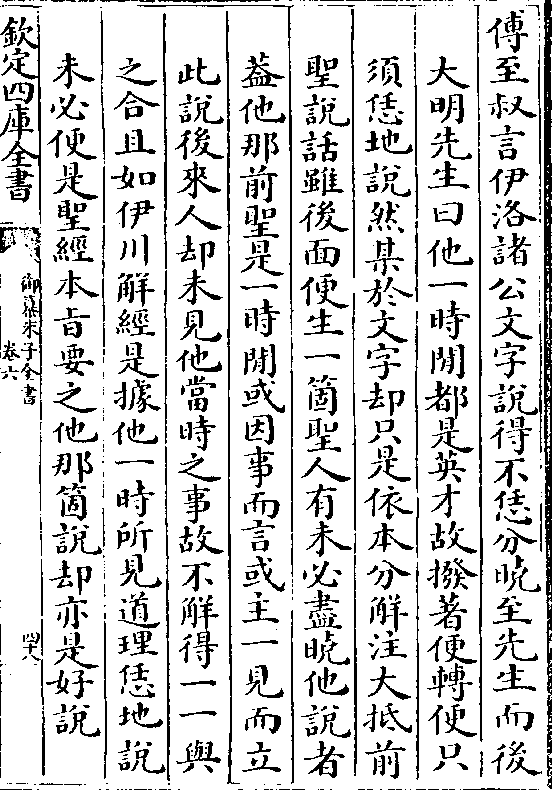 傅至叔言伊洛諸公文字說得不恁分曉至先生而後
大明先生曰他一時間都是英才故撥著便轉便只
須恁地說然某於文字却只是依本分解注大抵前
聖說話雖後面便生一箇聖人有未必盡曉他說者
葢他那前聖是一時間或因事而言或主一見而立
此說後來人却未見他當時之事故不解得一一與
之合且如伊川解經是據他一時所見道理恁地說
未必便是聖經本旨要之他那箇說却亦是好說
欽定四庫全書
御纂朱子全書
卷六
四十八